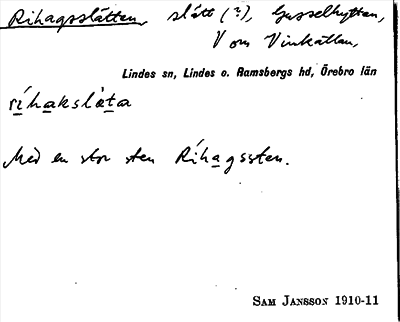 Rihagsslåtten, slått (?), Gusselhyttan,
V om Vinkällan,
Lindes sn, Lindes o. Ramsbergs hd, Örebro län
ríhakslåta
Med en stor sten Ríhagssten.
SAM JANSSON 1910-11